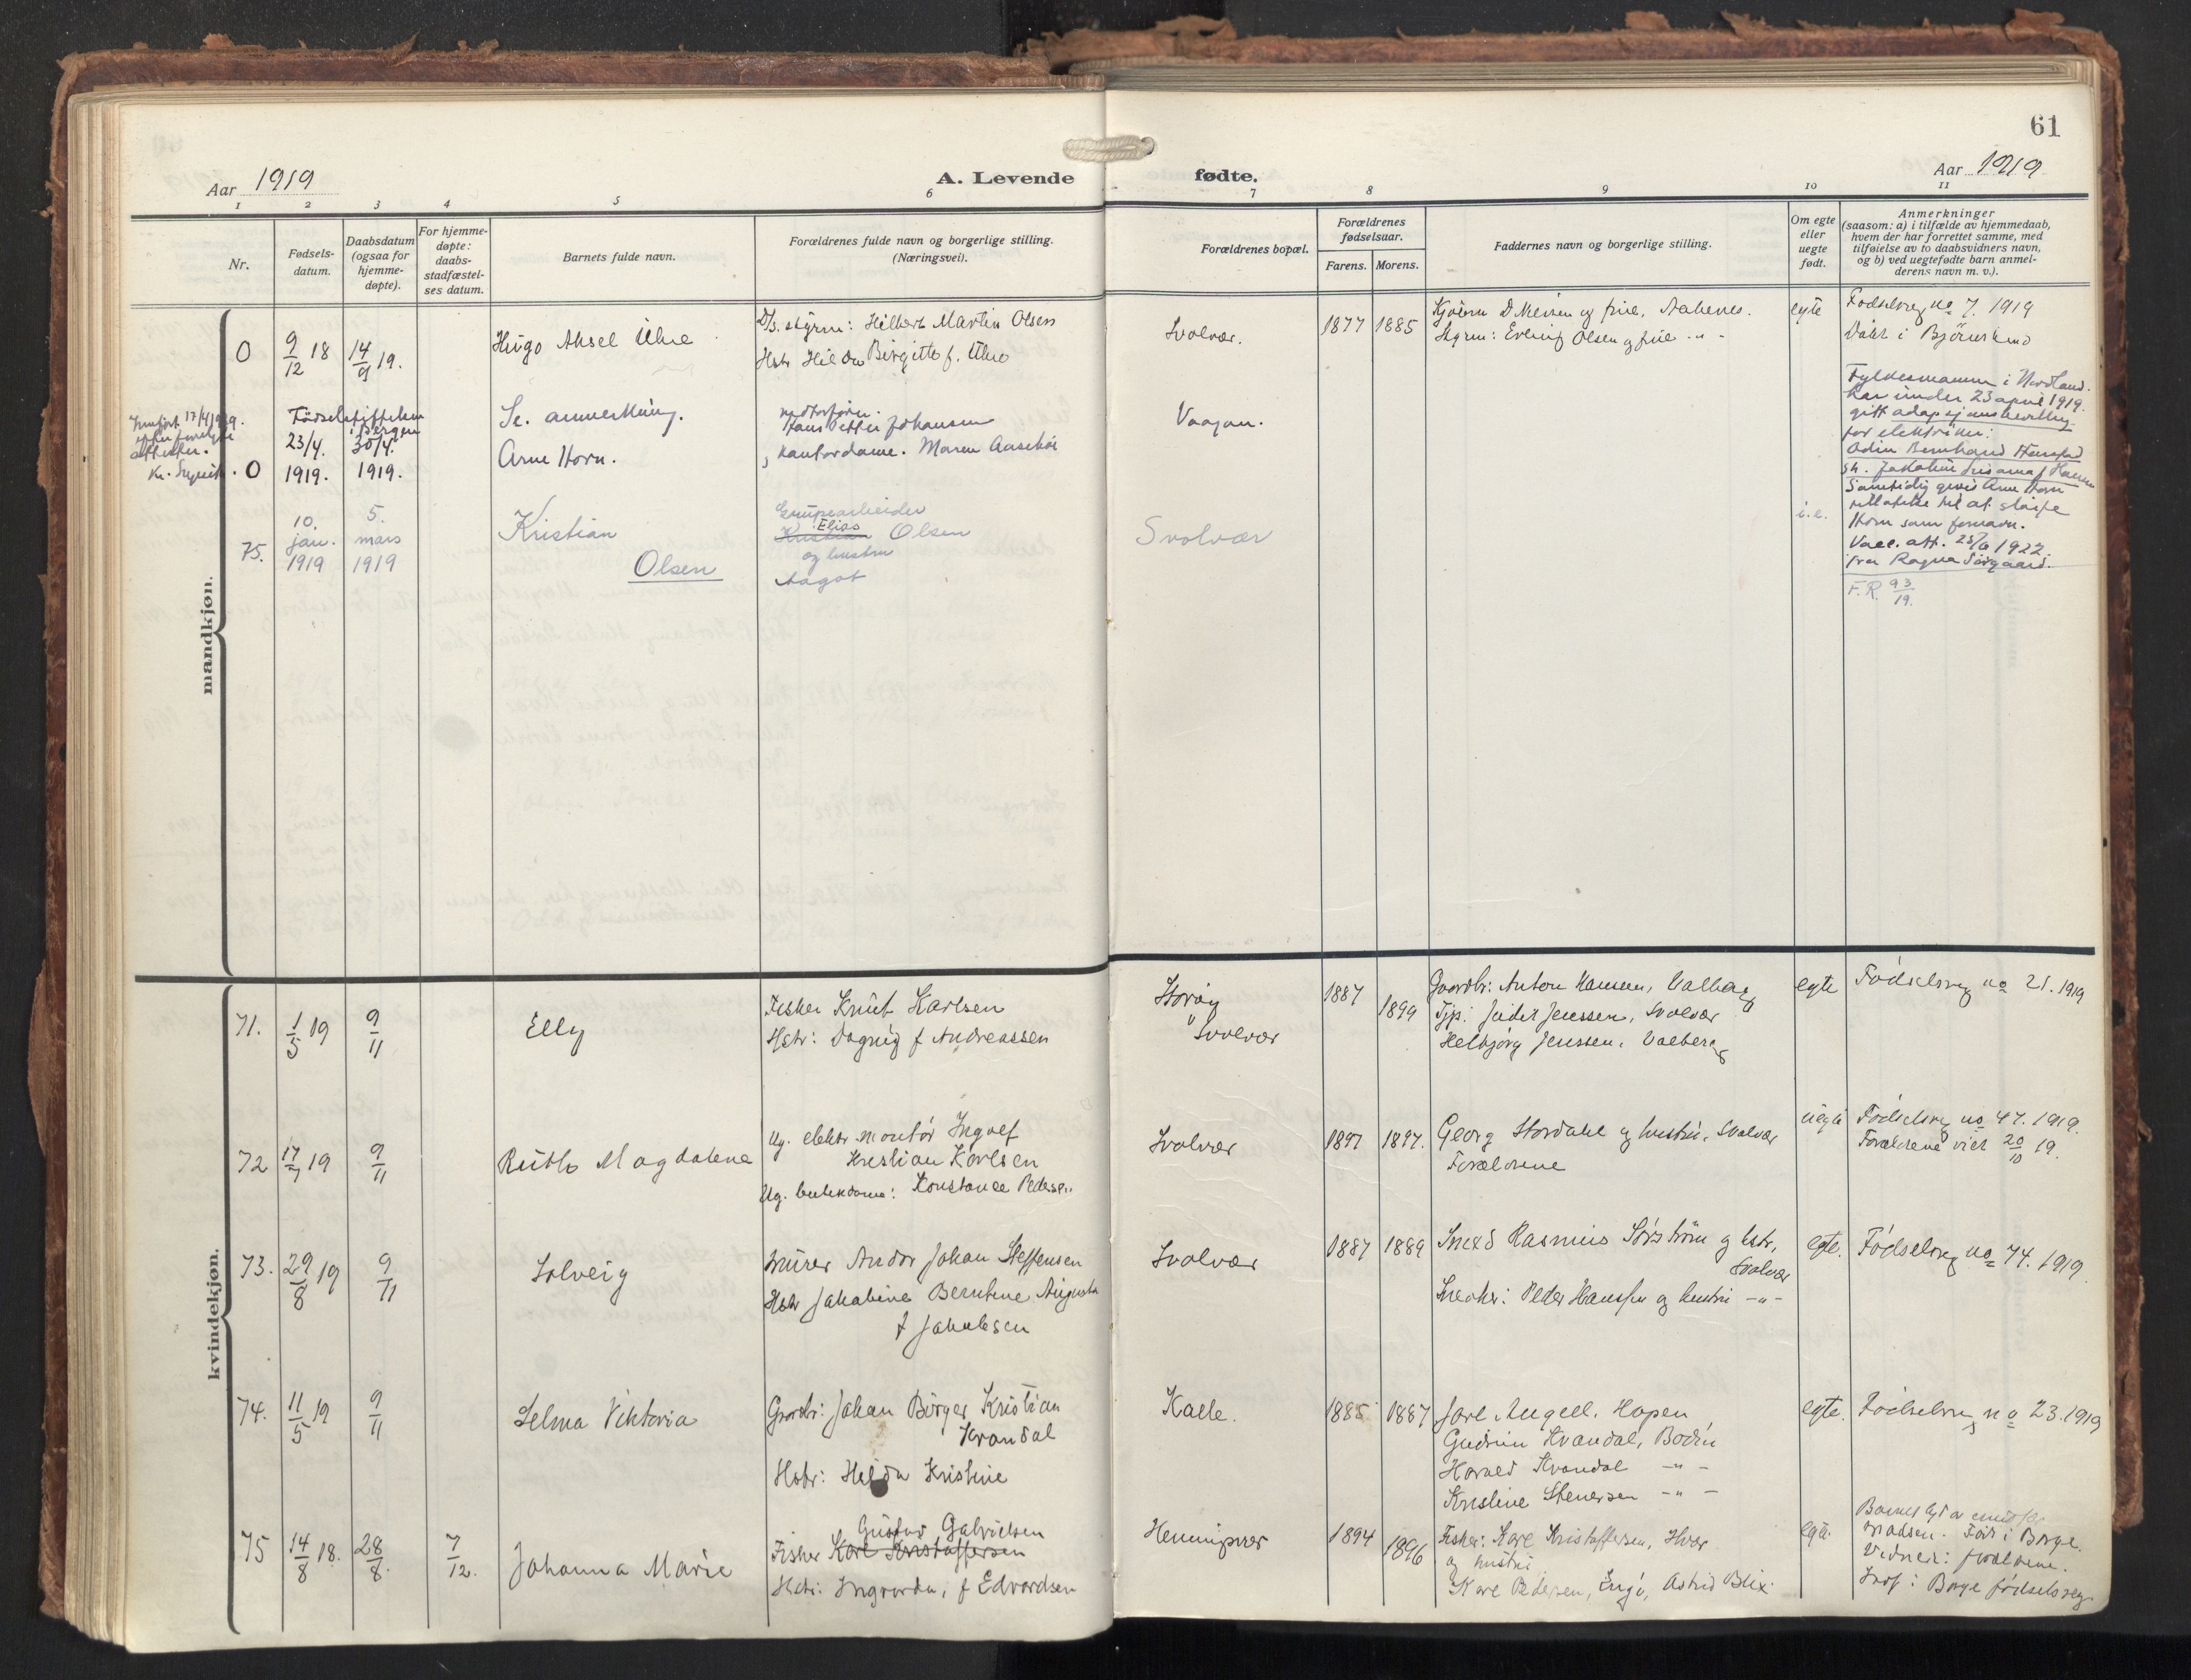 61
Aar 1919
A. Levende fødte.
Aar 1919
1 2 3 4 5 6 7 8 9 10 11
Nr.
Fødsels-
datum.
Daabsdatum
(ogsaa for
hjemme-
døpte).
For hjemme-
døpte:
daabs-
stadfæstel-
ses datum.
Barnets fulde navn.
Forældrenes fulde navn og borgerlige stilling.
(Næringsvei).
Forældrenes bopæl.
Forældrenes
fødselsaar.
Farens. Morens.
Faddernes navn og borgerlige stilling.
Om egte
eller
uegte
født.
Anmerkninger
(saasom: a) i tilfælde av hjemmedaab,
hvem der har forrettet samme, med
tilføielse av to daabsvidners navn,
og b) ved uegtefødte barn anmel-
derens navn m. v.).
mandkjøn.
0 9/12 18 14/9 19.
Hugo Aksel
D/s. styrm: Hilbert Martin Olsen
Hstr Hilda Birgitte f.
Svolvær.
1877 1885
Styrm: Erling Olsen og frue -"-
egte
Fødselsreg no 7. 1919
Døbt i
Fødselsstiftelsen
i Bergen
23/4. 30/4.
0 1919. 1919.
Se. anmerkning.
Arne Horn.
Hans Petter Johansen
kontordame. Maren
Vaagan.
Fylkesmannen i Nordland.
har under 23 april 1919.
gitt adopsjonsbevilling
for elektriker:
Odin Bernhard
Samtidig gives Arne Horn
rett til at sløife
Horn som fornavn.
Vacc. att. 25/6 1922.
fra Ragna
75.
10. jan. 1919
5. mars 1919
Kristian
Olsen
Grubearbeider
Elias
Kristian Olsen
og hustru
Aagot
Svolvær
i.e.
F.R. 93/19.
kvindekjøn.
71. 1/5 19 9/11
Elly
Fisker Knut Karlsen
Hstr: Dagny f Andreassen
Storøy
Svolvær
1887 1899
Gaardbr: Anton Hansen, Valberg
Tjp: Judit Jenssen, Svolvær
Helbjørg Jenssen, Valberg
egte
Fødselsreg no 21. 1919
72 17/7 19 9/11
Ruth Magdalena
Ug. elektr montør Ingolf
Kristian Karlsen
Ug. butikdame: Konstance Pedersen
Svolvær
1897 1897.
Georg Stordahl og hustru, Svolvær
Forældrene
uegte
Fødselsreg no 47. 1919.
Forældrene viet 20/10 19.
73. 29/8 19 9/11
Solveig
Murer Andor Johan Steffensen
Hstr Jakobine Berntine Augusta
f Jakobsen
Svolvær
1887 1889
Rasmus og hstr,
Svolvær
Peder Hanssen og hustru -"-
egte.
Fødselsreg no 74. 1919
74. 11/5 19 9/11
Selma Viktoria
Grdbr: Johan Birger Kristian
Kvandal
Hstr: Hilda Kristine
Kalle.
1885 1887
Jarl Angell, Hopen
Gudrun Kvandal, Bodin
Harald Kvandal -"-
Kristine Stenersen -"-
egte.
Fødselsreg no 23. 1919
75 14/8 18. 28/8. 7/12.
Johanna Marie
Gustav Gabrielsen
Fisker Karl Kristoffersen
Hstr: Ingvarda, f Edvardsen
Henningsvær
1894 1896
Fisker: Karl Kristoffersen, Hvær
og hustru
Kare Pedersen, Engø, Astrid Blix.
egte.
Madsen. Født i Borge.
Vidner: forældrene.
Indf i Borge fødselsreg.